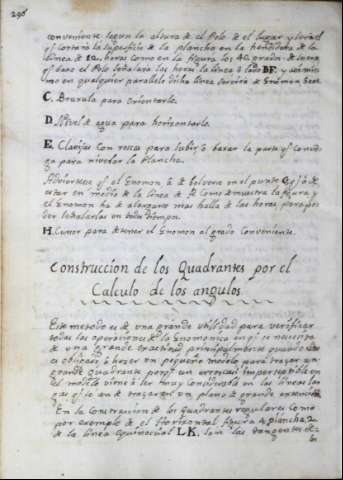 296
conveniente segun la altura de el Polo de el lugar y sera el
q̃ cortará la supeficie de la plancha en la hendidura de la
linea de 12, horas como en la figura los 40 grados de
q̃ baxo el Polo señalara las horas la linea ò lado DF. y
mo en qualquier parallelo dicha linea serbira de Gnomon
C. Bruxula para Orientarle.
D. Nibel de agua para horizontarle.
E. Clavijas Con roscas para subir, ò baxar la parte q̃
ga para nivelar la Plancha.
Adviertese q̃ el Gnomon à de bolverse en el punto q̃ à de
estar en medio de la linea de como demuestra la figura y
el Gnomon ha de alargarse mas halla de las horas para po-
der señalarlas en todo tiempo.
H. Cursor para detener el Gnomon al grado Conveniente.
Construccion de los Quadrantes por el
Calculo de los angulos.
Este metodo es de una grande utilidad para verificar
todas las operaciones de la Gnomonica en q̃ se necesita
de una grande practica, principalmente quando
es obligado à hazer un pequeño modelo para trazar un
grande quadrante porq̃ un error casi imperceptible en
el modelo viene à ser muy Considerable en las lineas lar-
gas q̃ se an de trazar en un plano de grande extencion
En la Construccion de los Quadrantes regulares Como
por exemplo de el Horizontal figura 4 plancha 2
de la linea equinocial LK, son las tangentes de